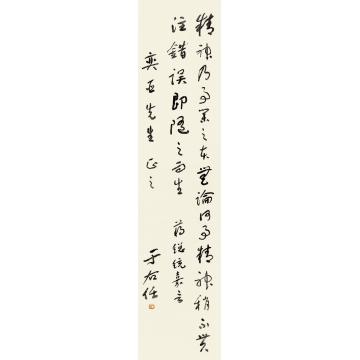 精神乃事業之本無論何事精神稍不貫
注錯誤即隨之而生 蔣總統嘉言
奕亞先生正之
于右任